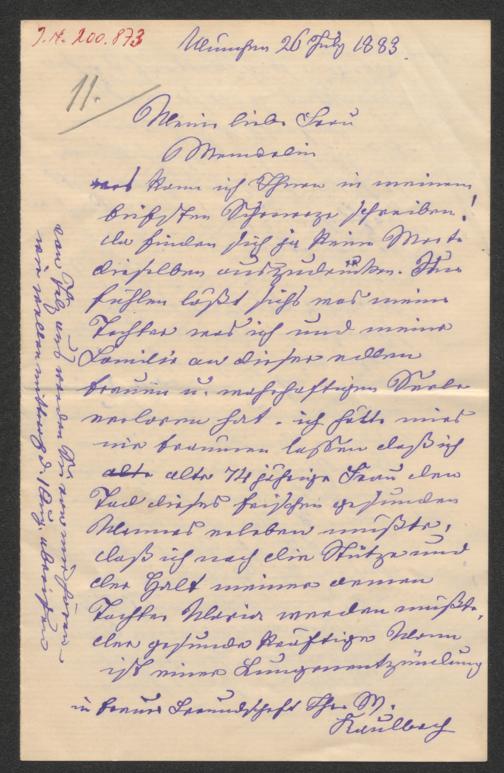 J.N. 200.873
München 26 July 1883.
11.
Meine liebe Frau
Wendelin
was kann ich Ihnen in meinem
tiefsten Schmerze schreiben!
da finden sich ja keine Worte
dieselben auszudrücken. Nur
fühlen läßt sichs was meine
Tochter was ich und meine
Familie an dieser edlen
treuen u. wahrhaftigen Seele
verloren hat. ich hätte mirs
nie träumen lassen daß ich
alte 74 jährige Frau den
Tod dieses frischen gesunden
Mannes erleben müßte,
daß ich noch die Stütze und
der Halt meiner armen
Tochter Maria werden müßte,
der gesunde kräftige Mann
ist einer Lungenentzündung
in treuer Freundschaft Ihre M.
Kaulbach